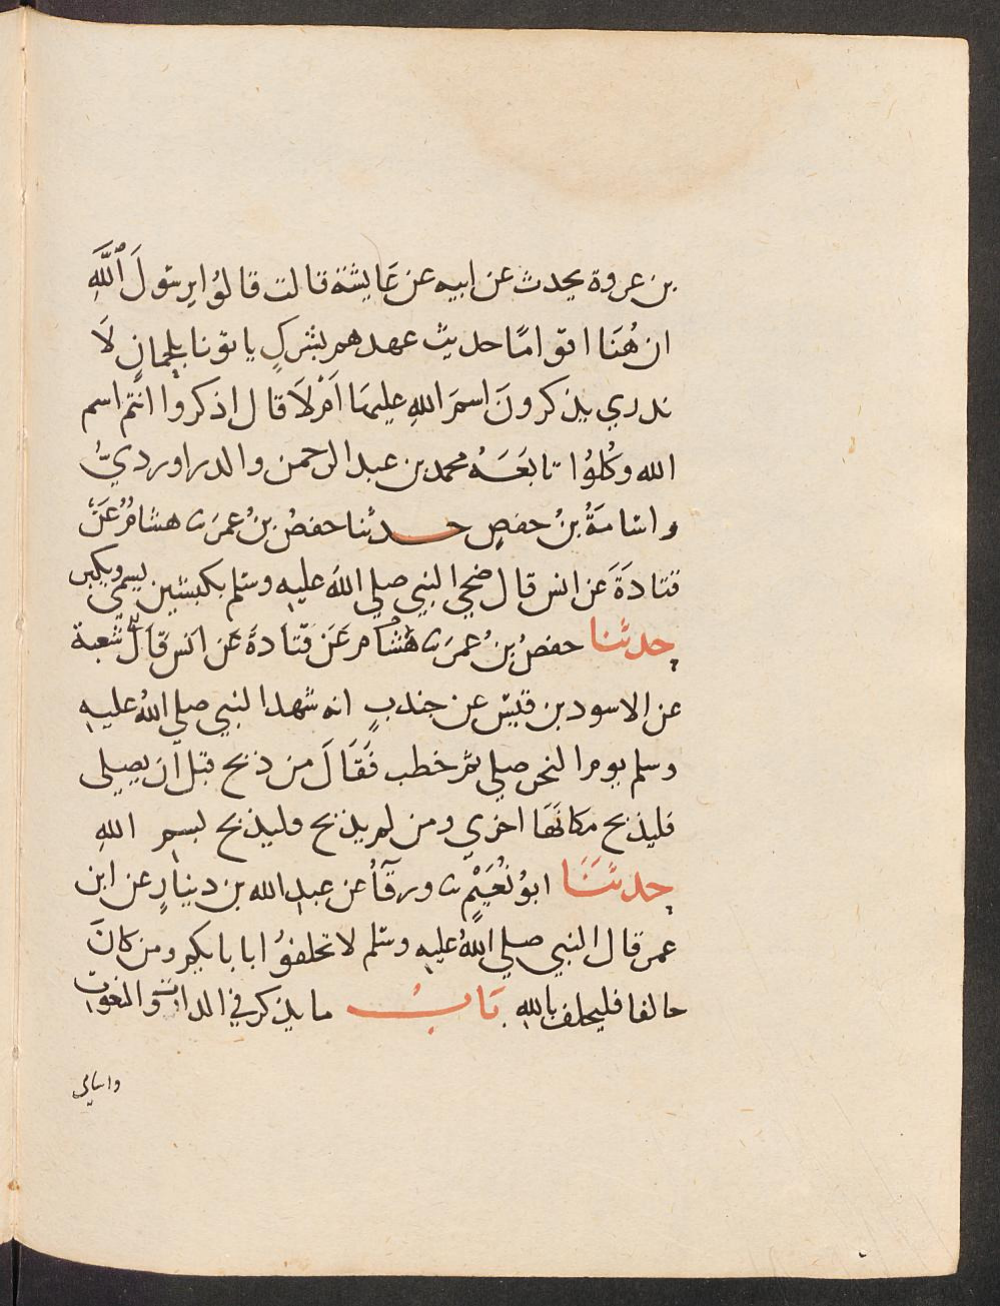 بن عروة يحدث عن ابيه عن عَايشة قالت قالوُا يرسُولَ اللَّهِ
ان هُنَا اقوامًا حديث عهدهم بشركٍ ياتونا بلحمانٍ لاَ
ندري يذكرونَ اسمَ اللهِ عليهَا اَمْ لاَ قال اذكروا انتم اسم
الله وكُلوُا تابعَهُ محمد بن عبد الرحمن والدراورديُّ
واسَامَةُ بنُ حفصٍ حدثنا حفصُ بنُ عمرَ ثنا هشامٌ عَنْ
قتادَةَ عَن انس قال ضحي النبي صلي اللهُ عليه وسلم بكبشين يسمي ويكبر
حدثنا حفصُ بنُ عمرَ ثنا هشام عَن قتادةَ عَن انس قَالَ شعبة
عن الاسود بن قيس عن جندبٍ انه شهد النبي صلي اللهُ عليه
وسلم يوم النحر صلي ثم خطب فَقَالَ من ذبح قبل اَن يصلي
فليذبح مكانَهَا اخري ومن لم يذبح فليذبح بسم اللهِ
حدثَنَا ابوُ نُعَيْمٍ ثنا ورقآُ عن عبد الله بن دينارٍ عن ابن
عمر قال النبي صلي اللهُ عليه وسلم لا تحلفوُا بابايكم ومن كانَ
حالفا فليحلف بالله بَابُ ما يذكر في الذات والنعوت
واسامي